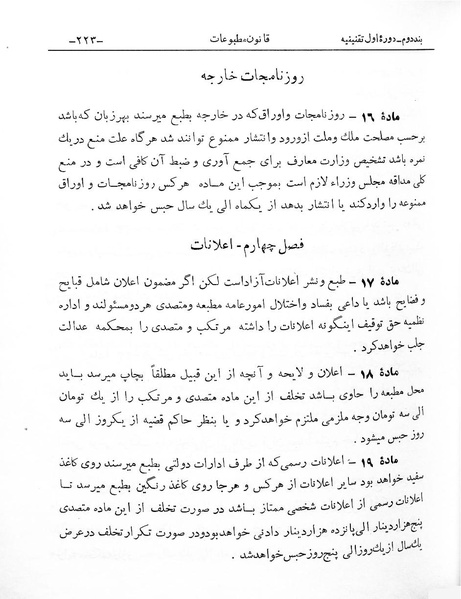 بنددوم-دورهٔ اول تقنینیه قانون مطبوعات -۲۲۳-
روزنامجات خارجه
مادهٔ ۱۶ - روزنامجات و اوراق که در خارجه بطبع میرسند بهرزبان که باشد
برحسب مصلحت ملك وملت ازورود وانتشار ممنوع توانند شد هرگاه علت منع دریك
نمره باشد تشخیص وزارت معارف برای جمع آوری و ضبط آن کافی است و در منع
کلی مداقه مجلس وزراء لازم است بموجب این ماده هرکس روزنامجات و اوراق
ممنوعه را واردکند یا انتشار بدهد از یکماه الی یك سال حبس خواهد شد .
فصل چهارم - اعلانات
مادهٔ ۱۷ - طبع ونشر اعلانات آزاداست لکن اگر مضمون اعلان شامل قبایح
و فضایح باشد یا داعی بفساد واختلال امورعامه مطبعه ومتصدی هردومسئولند و اداره
نظمیه حق توقیف اینگونه اعلانات را داشته مرتکب و متصدی را بمحکمه عدالت
جلب خواهدکرد
مادهٔ ۱۸ - اعلان و لایحه و آنچه از این قبیل مطلقاً بچاپ میرسد باید
محل مطبعه را حاوی باشد تخلف از این ماده متصدی و مرتکب را از یك تومان
الی سه تومان وجه ملزمی ملتزم خواهدکرد و یا بنظر حاکم قضیه از یکروز الی سه
روز حبس میشود .
مادهٔ ۱۹ - اعلانات رسمی که از طرف ادارات دولتی بطبع میرسند روی کاغذ
سفید خواهد بود سایر اعلانات از هرکس و هرجا روی کاغذ رنگین بطبع میرسد تا
اعلانات رسمی از اعلانات شخصی ممتاز باشد در صورت تخلف از این ماده متصدی
پنج هزاردینار الی پانزده هزاردینار دادنی خواهدبودودر صورت تکرارتخلف درعرض
یکسال ازیك روزالی پنج روزحبس خواهدشد .